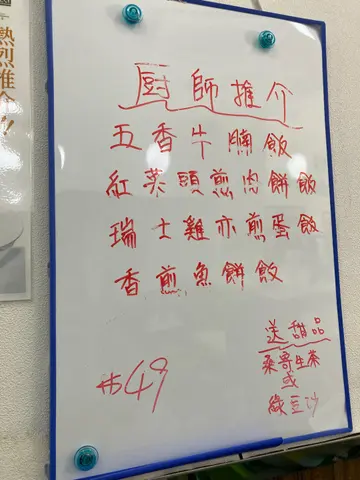 熱烈推介!!
廚師推介
五香牛腩飯
紅菜頭煎肉餅飯
瑞士雞亦煎蛋飯
香煎魚餅飯
送甜品
桑寄生茶
或
綠豆沙
$49